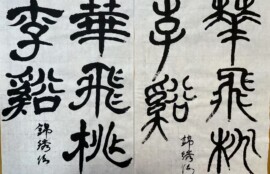 華飛桃
李谿
錦綉
華飛桃
李谿
錦綉